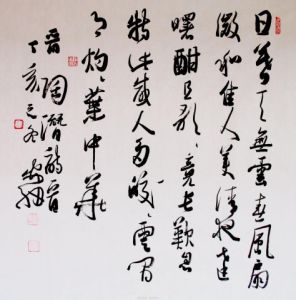 日暮天無雲春風扇
微和佳人美清夜達
曙酣且歌々竟長歎息
持此感人多皎々雲間
月灼々葉中華
晉陶潛詩
丁亥之冬